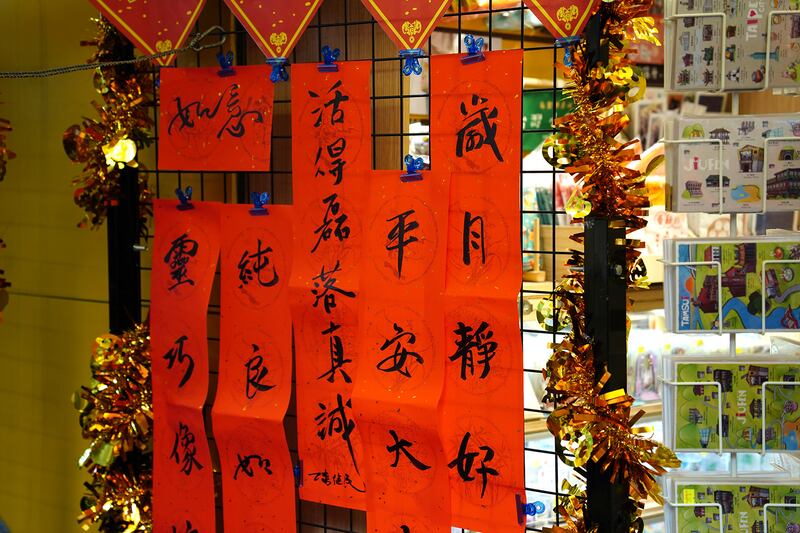 歲月靜好
平安大
活得磊落真誠
如意
純良如
靈巧像
TAIPEI
JIUFEN
TAMSUI
JIUFEN